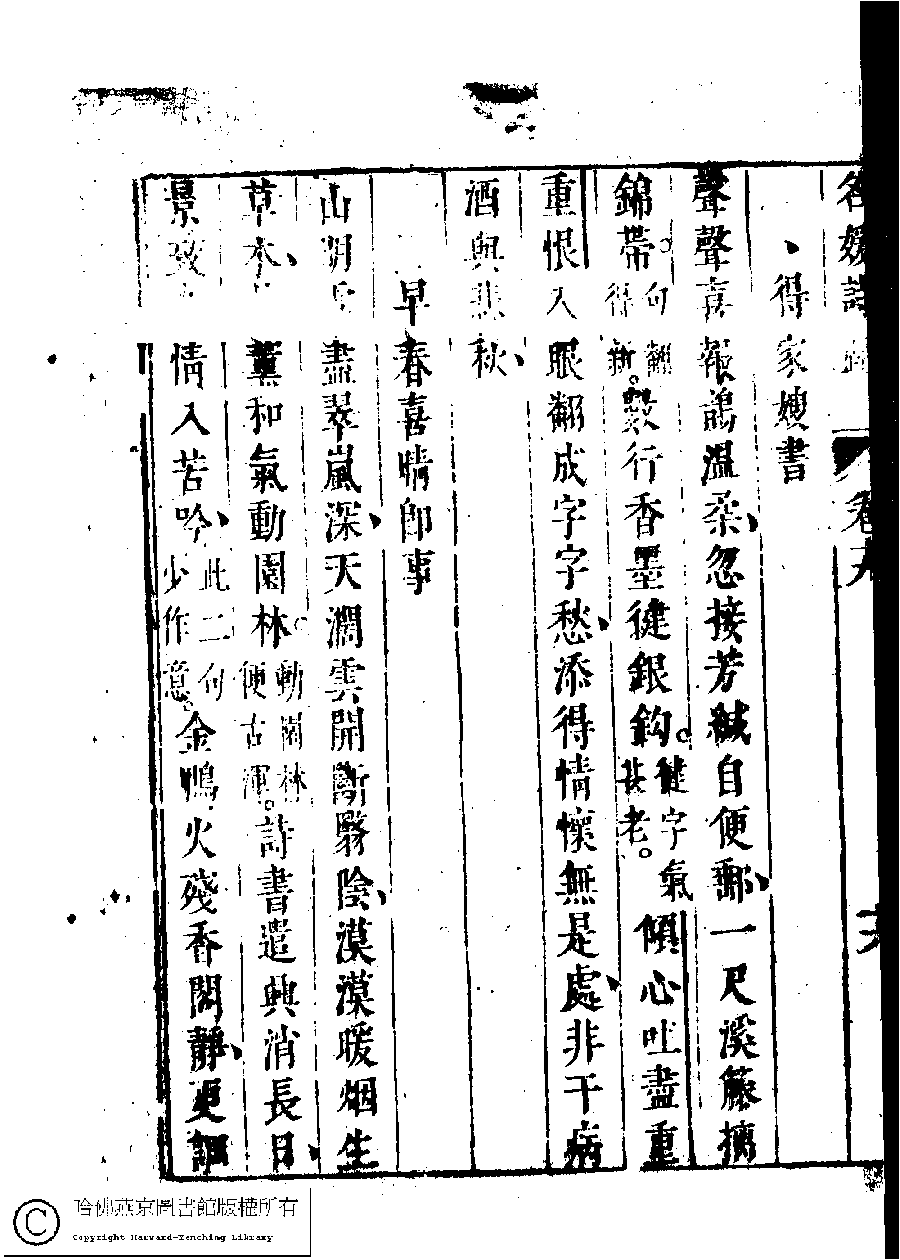 名媛詩歸 卷九 六
得家嫂書
聲聲喜報鵲溫柔忽接芳緘自便郵一尺溪籐摛
錦帶句翻得新數行香墨徤銀鈎徤字氣甚老傾心吐盡重
重恨入眼翻成字字愁添得情懷無是處非干病
酒與悲秋
早春喜晴即事
山明 盡翠嵐深天濶雲開斷翳陰漠漠暖烟生
草木 薰和氣動園林動園林便古渾詩書遣興消長日
景 情入苦吟此二句少作意金鴨火殘香閣靜更調
哈佛燕京圖書館版權所有
Copyright Harvard-Yenching Library